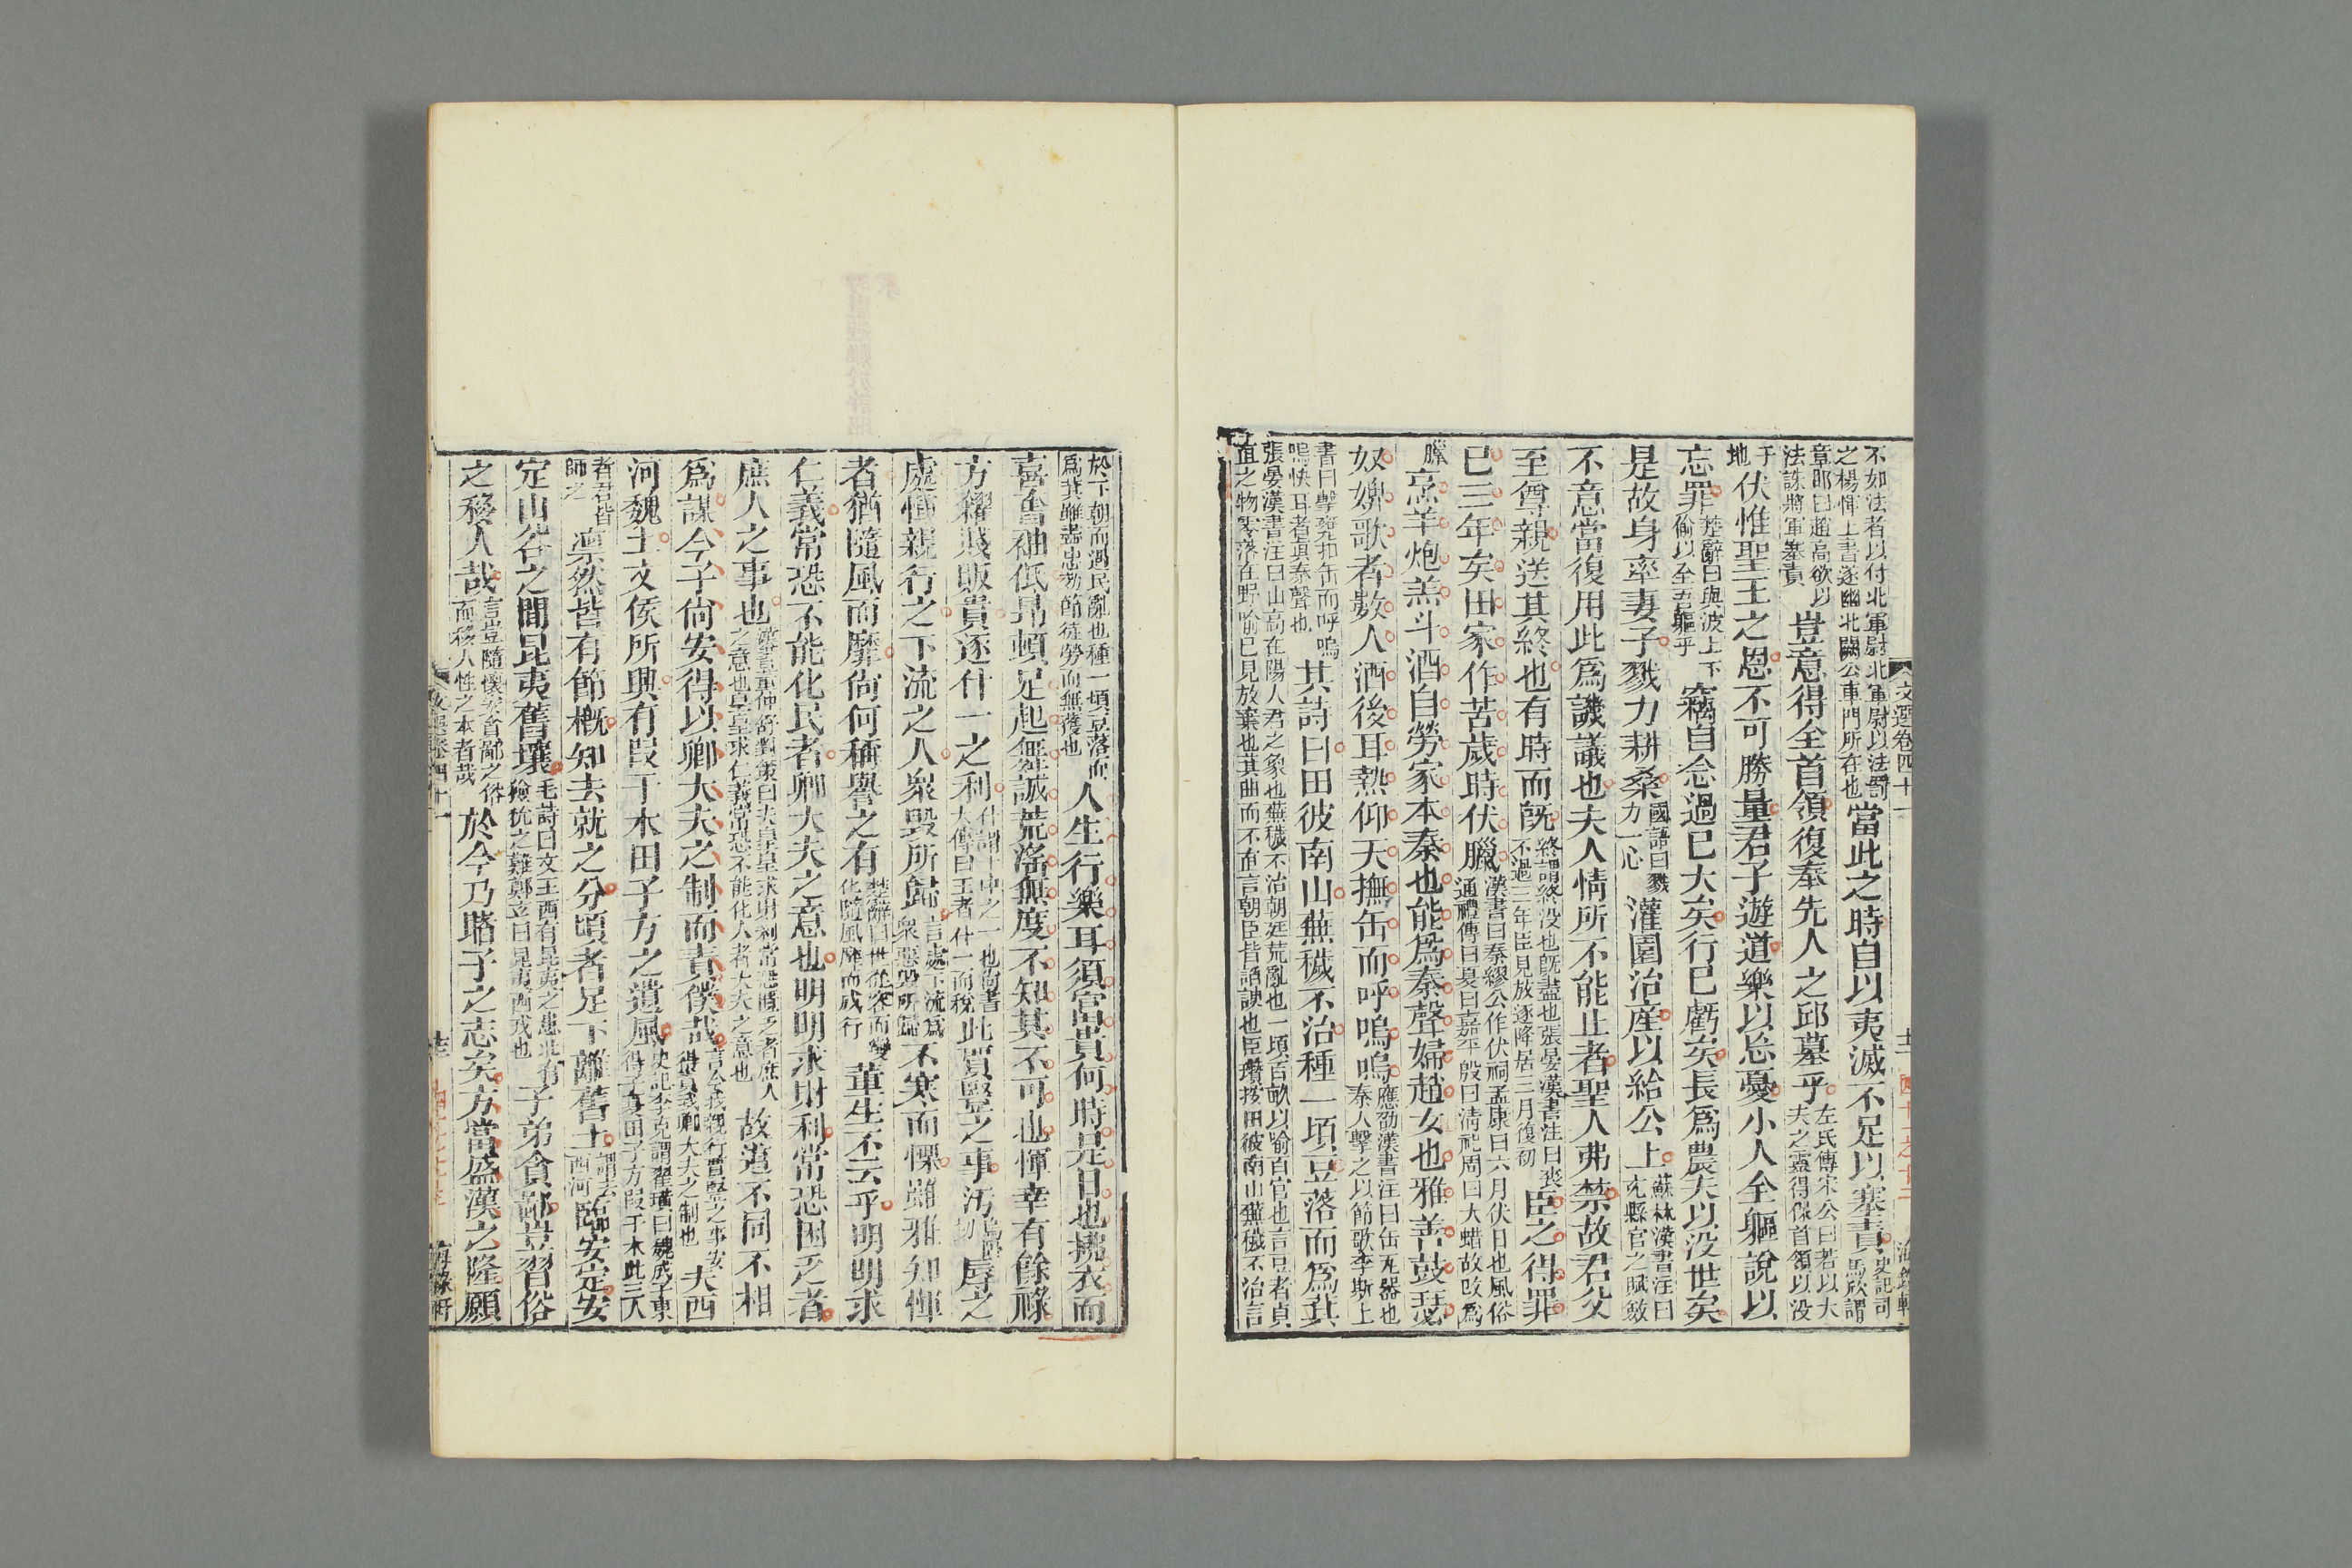 文選卷四十一
不如法者以付北軍尉北軍尉以法罰
之楊惲上書遂幽北闕公車門所在也
當此之時自以夷滅不足以塞責
史記司
馬欣謂
章邯曰趙高欲以
法誅將軍塞責
豈意得全首領復奉先人之邱墓乎
左氏傳宋公曰若以大
夫之靈得保首領以没
于
地
伏惟聖主之恩不可勝量君子遊道樂以忘憂小人全軀說以
忘罪
楚辭曰與波上下
偷以全吾軀乎
竊自念過已大矣行已虧矣長爲農夫以没世矣
是故身率妻子戮力耕桑
國語曰戮
力一心
灌園治產以給公上
蘇林漢書注曰
充縣官之賦斂
不意當復用此爲譏議也夫人情所不能止者聖人弗禁故君父
至尊親送其終也有時而旣
終謂終没也旣盡也張晏漢書注曰喪
不過三年臣見放逐降居三月復初
臣之得罪
已三年矣田家作苦歲時伏臘
漢書曰秦繆公作伏祠孟康曰六月伏日也風俗
通禮傳曰夏曰嘉平殷曰清祀周曰大蜡故改爲
臘
烹羊炮羔斗酒自勞家本秦也能爲秦聲婦趙女也雅善鼓瑟
奴婢歌者數人酒後耳熱仰天撫缶而呼嗚嗚
應劭漢書注曰缶瓦器也
秦人擊之以節歌李斯上
書曰擊甕扣缶而呼嗚
嗚快耳者眞秦聲也
其詩曰田彼南山蕪穢不治種一頃豆落而爲萁
張晏漢書注曰山高在陽人君之象也蕪穢不治朝廷荒亂也一頃百畝以喻百官也言豆者貞
直之物零落在野喻已見放棄也萁曲而不直言朝臣皆諂諛也臣瓚按田彼南山蕪穢不治言
於下朝而遇民亂也種一頃豆落而
爲萁雖盡忠効節徒勞而無獲也
人生行樂耳須富貴何時是日也拂衣而
喜奮袖低昂頓足起舞誠荒淫無度不知其不可也惲幸有餘祿
方糴賤販貴逐什一之利
什謂十中之一也尚書
大傳曰王者什一而稅
此賈豎之事汚辱之
處惲親行之下流之人衆毀所歸
言處下流爲
衆惡毀所歸
不寒而慄雖雅知惲
者猶隨風而靡尙何稱譽之有
楚辭曰世從容而變
化隨風靡而成行
董生不云乎明明求
仁義常恐不能化民者卿大夫之意也明明求財利常恐困乏者
庶人之事也
漢書董仲舒對策曰夫皇皇求財利常恐匱乏者庶人
之意也皇皇求仁義常恐不能化人者大夫之意也
故道不同不相
爲謀今子尙安得以卿大夫之制而責僕哉
言公我親行賈豎之事安
得責我卿大夫之制也
夫西
河魏土文侯所興有段干木田子方之遺風
史記李克謂翟璜曰魏成子東
得子夏田子方段干木此三人
者君皆
師之
凛然皆有節槪知去就之分頃者足下離舊土
謂去
西河
臨安定安
定山谷之間昆夷舊壤
毛詩曰文王西有昆夷之患北有
獫狁之難鄭玄曰昆夷西戎也
子弟貪鄙豈習俗
之移人哉
言豈隨懷安貪鄙之俗
而移人性之本者哉
於今乃睹子之志矣方當盛漢之隆願